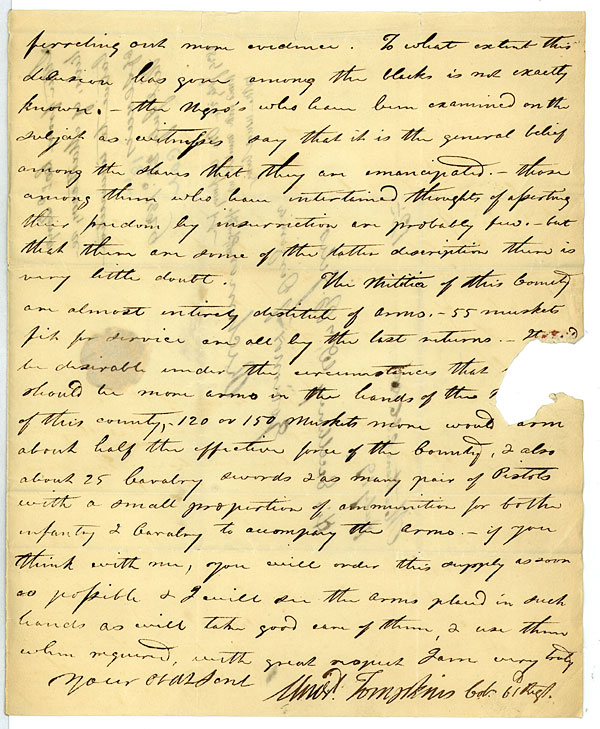 ferreting out more evidence. To what extent this
delusion has gone among the blacks is not exactly
known. – the Negro's who have been examined on the
subject as witnesses say that it is the general belief
among the slaves that they are emancipated. – those
among them who have intertained thoughts of asserting
their freedom by insurrection are probably few. – but
that there are some of the latter description there is
very little doubt. The Militia of this County
are almost entirely destitute of arms. – 55 muskets
fit for service are all by the last returns. –
be desirable under the circumstances that
should be more arms in the hands of the
of this county, 120 or 150 Muskets more would arm
about half the effective force of the County, & also
about 25 Cavalry swords & as many pair of Pistols
with a small proportion of ammunition for both
infantry & Cavalry to accompany the arms. – if you
think with me, you will order this supply as soon
as possible & I will see the arms placed in such
hands as will take good care of them, & use them
when required, with great respect I am very truly
Your Obdt Servt Tompkins Col. 61 Regt.